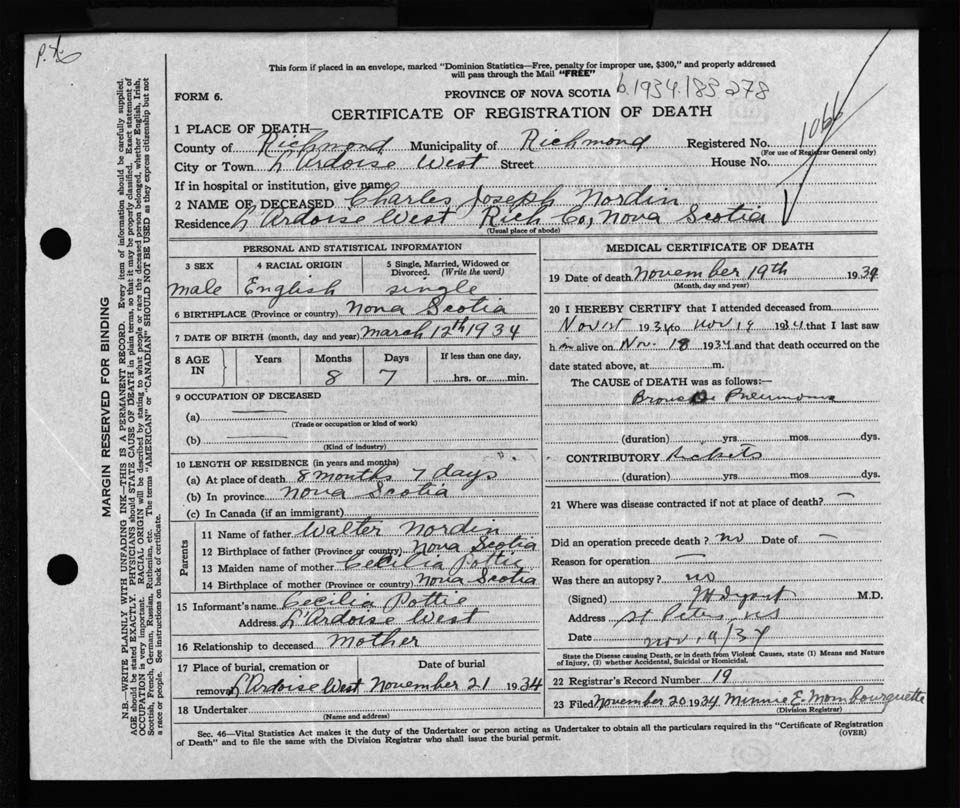 This form if placed in an envelope, marked "Dominion Statistics—Free, penalty for improper use, $300," and properly addressed
will pass through the Mail "FREE"
FORM 6.
PROVINCE OF NOVA SCOTIA b.1934.183278
CERTIFICATE OF REGISTRATION OF DEATH
1066
1 PLACE OF DEATH—
County of Richmond Municipality of Richmond Registered No.
(For use of Registrar General only)
City or Town L'Ardoise West Street House No.
If in hospital or institution, give name
2 NAME OF DECEASED Charles Joseph Nordin
Residence L'Ardoise West Rich Co, Nova Scotia
(Usual place of abode)
PERSONAL AND STATISTICAL INFORMATION
3 SEX 4 RACIAL ORIGIN 5 Single, Married, Widowed or
Divorced. (Write the word)
male English single
6 BIRTHPLACE (Province or country) Nova Scotia
7 DATE OF BIRTH (month, day and year) March 12th 1934
8 AGE IN Years Months Days If less than one day,
8 7 hrs. or min.
9 OCCUPATION OF DECEASED
(a) —
(Trade or occupation or kind of work)
(b) —
(Kind of industry)
10 LENGTH OF RESIDENCE (in years and months)
(a) At place of death 8 months 7 days
(b) In province Nova Scotia
(c) In Canada (if an immigrant)
Parents
11 Name of father Walter Nordin
12 Birthplace of father (Province or country) Nova Scotia
13 Maiden name of mother Cecilia Pottie
14 Birthplace of mother (Province or country) Nova Scotia
15 Informant's name Cecilia Pottie
Address L'Ardoise West
16 Relationship to deceased Mother
17 Place of burial, cremation or Date of burial
removal L'Ardoise West November 21 1934
18 Undertaker
(Name and address)
MEDICAL CERTIFICATE OF DEATH
19 Date of death November 19th 1934
(Month, day and year)
20 I HEREBY CERTIFY that I attended deceased from
Nov 1st 1934 to Nov 19 1934 that I last saw
him alive on Nov. 18 1934 and that death occurred on the
date stated above, at m.
The CAUSE OF DEATH was as follows:—
Pneumonia
(duration) yrs. mos. dys.
CONTRIBUTORY Rickets
(duration) yrs. mos. dys.
21 Where was disease contracted if not at place of death? —
Did an operation precede death? no Date of —
Reason for operation —
Was there an autopsy? no
(Signed) M.D.
Address St Peters, NS
Date Nov. 19/34
State the Disease causing Death, or in death from Violent Causes, state (1) Means and Nature
of Injury, (2) whether Accidental, Suicidal or Homicidal.
22 Registrar's Record Number 19
23 Filed November 20 1934 Minnie E. Mombourquette
(Division Registrar)
Sec. 46—Vital Statistics Act makes it the duty of the Undertaker or person acting as Undertaker to obtain all the particulars required in the "Certificate of Registration
of Death" and to file the same with the Division Registrar who shall issue the burial permit. (OVER)
MARGIN RESERVED FOR BINDING
N.B.—WRITE PLAINLY WITH UNFADING INK—THIS IS A PERMANENT RECORD. Every item of information should be carefully supplied.
AGE should be stated EXACTLY. PHYSICIANS should STATE CAUSE OF DEATH in plain terms, so that it may be properly classified. Exact statement of
OCCUPATION is very important. RACIAL ORIGIN will be described by stating to what people or race the deceased person belonged, whether English, Irish,
Scottish, French, German, Russian, Ruthenian, etc. The terms "AMERICAN" or "CANADIAN" SHOULD NOT BE USED as they express citizenship but not
a race or people. See instructions on back of certificate.